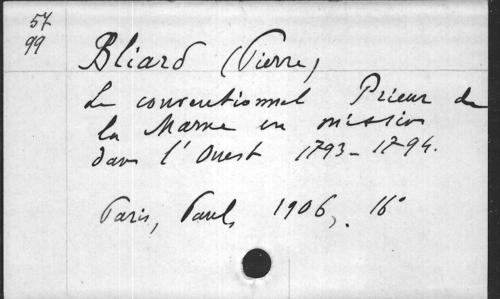 57
99
Bliard (Pierre)
Le conventionnel Prieur de
la Marne en mission
dans l'Ouest 1793-1794.
Paris, Paul, 1906, . 16°